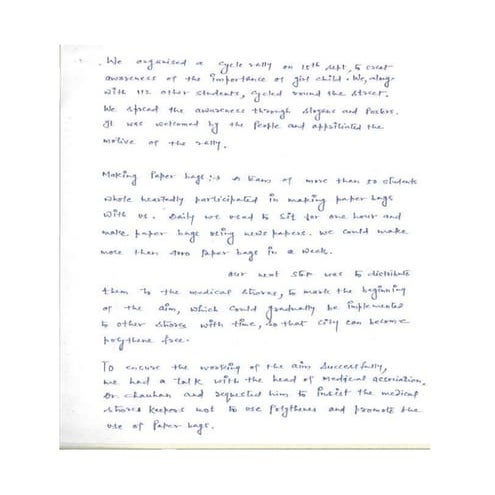 We organised a cycle rally on 15th sept, to creat
awareness of the importance of girl child. We, along-
with 112 other students, cycled round the street.
We spread the awareness through slogans and Posters.
It was welcomed by the People and appriciated the
motive of the rally.
Making Paper bags :→ A team of more than 50 students
whole heartedly participated in making paper bags
with us. Daily we used to sit for one hour and
make paper bags using news papers. we could make
more than 4000 Paper bags in a week.
Our next step was to distribute
them to the medical stores, to mark the beginning
of the aim, which could gradually be implemented
to other stores with time, so that city can become
polythene free.
To ensure the working of the aim successfully,
we had a talk with the head of medical association,
Dr. Chauhan and requested him to insist the medical
stores keepers not to use Polythenes and promote the
use of Paper bags.